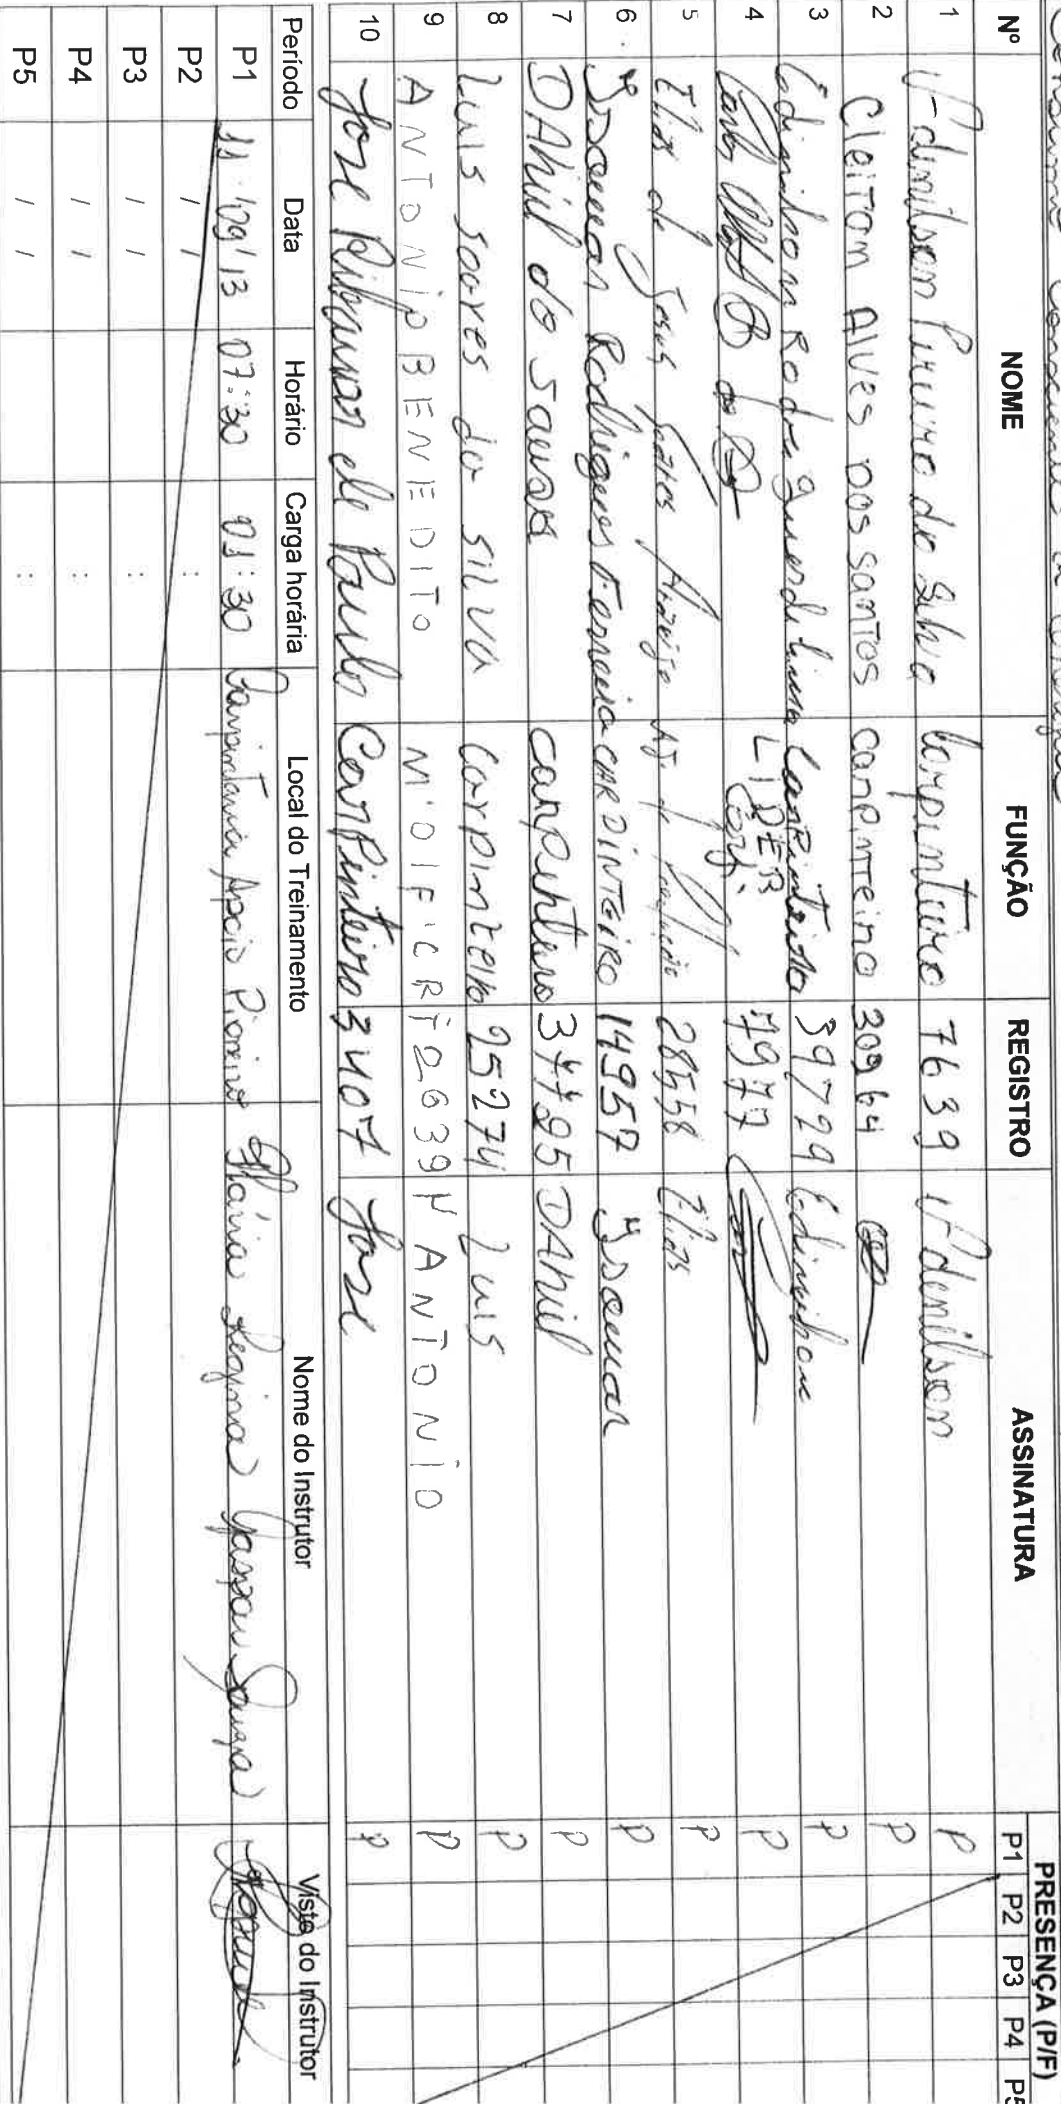 Nº NOME FUNÇÃO REGISTRO ASSINATURA PRESENÇA (P/F)
P1 P2 P3 P4 P5
1 Vadenilson Pereira da Silva Carpinteiro 7639 Vadenilson P
2 Cleiton Alves dos Santos Carpinteiro 30964 P
3 Edimilson Rodrigues de Lima Carpinteiro 39729 Edimilson P
4 Carlos LIDER Carp. 7977 P
5 Elias de Jesus Santos Aj. de produção 28558 Elias P
6 Isomar Rodrigues Ferreira CARPINTEIRO 14957 Isomar P
7 DANiel de Souza carpinteiro DANiel P
8 Luis Soares da Silva Carpinteiro 25274 Luis P
9 ANTONIO BENEDITO 2639 ANTONIO P
10 Jose Ribamar de Paulo Carpinteiro 3407 Jose P
Período Data Horário Carga horária Local do Treinamento Nome do Instrutor Visto do Instrutor
P1 11/09/13 07:30 01:30 Carpintaria Apoio Pioneiro Flávia Regina Souza
P2 / / :
P3 / / :
P4 / / :
P5 / / :